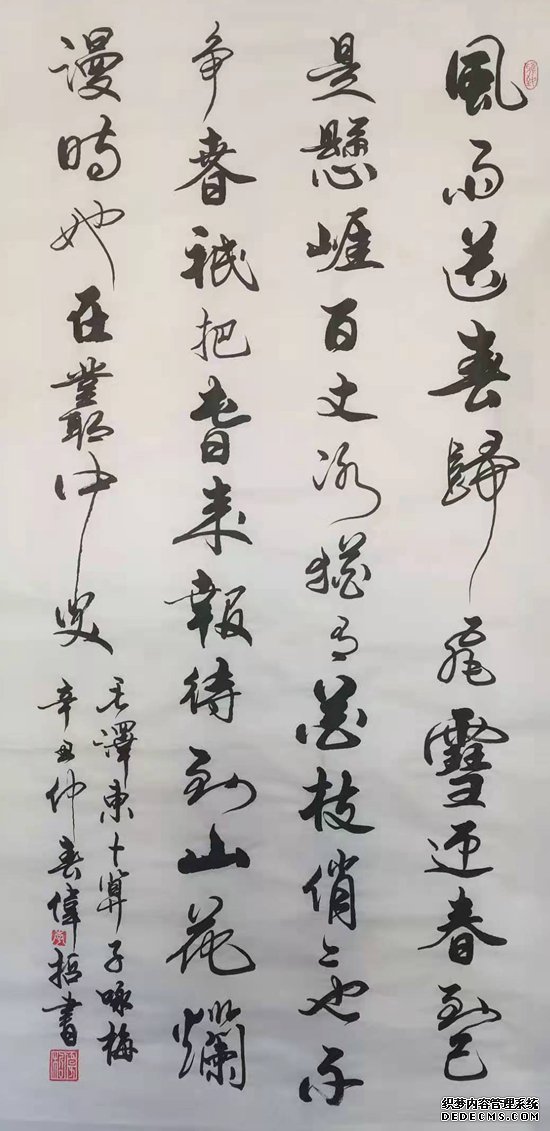 風雨送春歸飛雪迎春到已
是懸崖百丈冰猶有花枝俏〻也不
争春祇把春來報待到山花爛
漫時她在叢中笑
毛澤東卜算子咏梅
辛丑仲春偉哲書
织梦内容管理系统
DEDECMS.COM